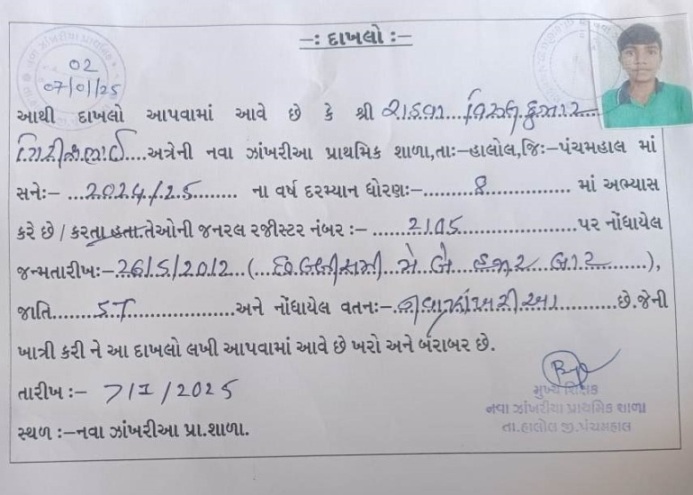 -: દાખલો :-
02
07/01/25
આથી દાખલો આપવામાં આવે છે કે શ્રી રાઠવા વિરલકુમાર
ગિરીશભાઈ અત્રેની નવા ઝાંખરીઆ પ્રાથમિક શાળા,તાઃ-હાલોલ,જિઃ-પંચમહાલ માં
સનેઃ- 2024/25 ના વર્ષ દરમ્યાન ધોરણઃ- 8 માં અભ્યાસ
કરે છે / કરતા હતા.તેઓની જનરલ રજીસ્ટર નંબર :- 2105 પર નોંધાયેલ
જન્મતારીખઃ- 26/5/2012 (છવ્વીસમી મે બે હજાર બાર),
જાતિ ST અને નોંધાયેલ વતનઃ- નવાઝાંખરીઆ છે.જેની
ખાત્રી કરી ને આ દાખલો લખી આપવામાં આવે છે ખરો અને બરાબર છે.
તારીખ :- 7/1/2025
મુખ્ય શિક્ષક
નવા ઝાંખરીયા પ્રાથમિક શાળા
તા.હાલોલ જી.પંચમહાલ
સ્થળ :-નવા ઝાંખરીઆ પ્રા.શાળા.